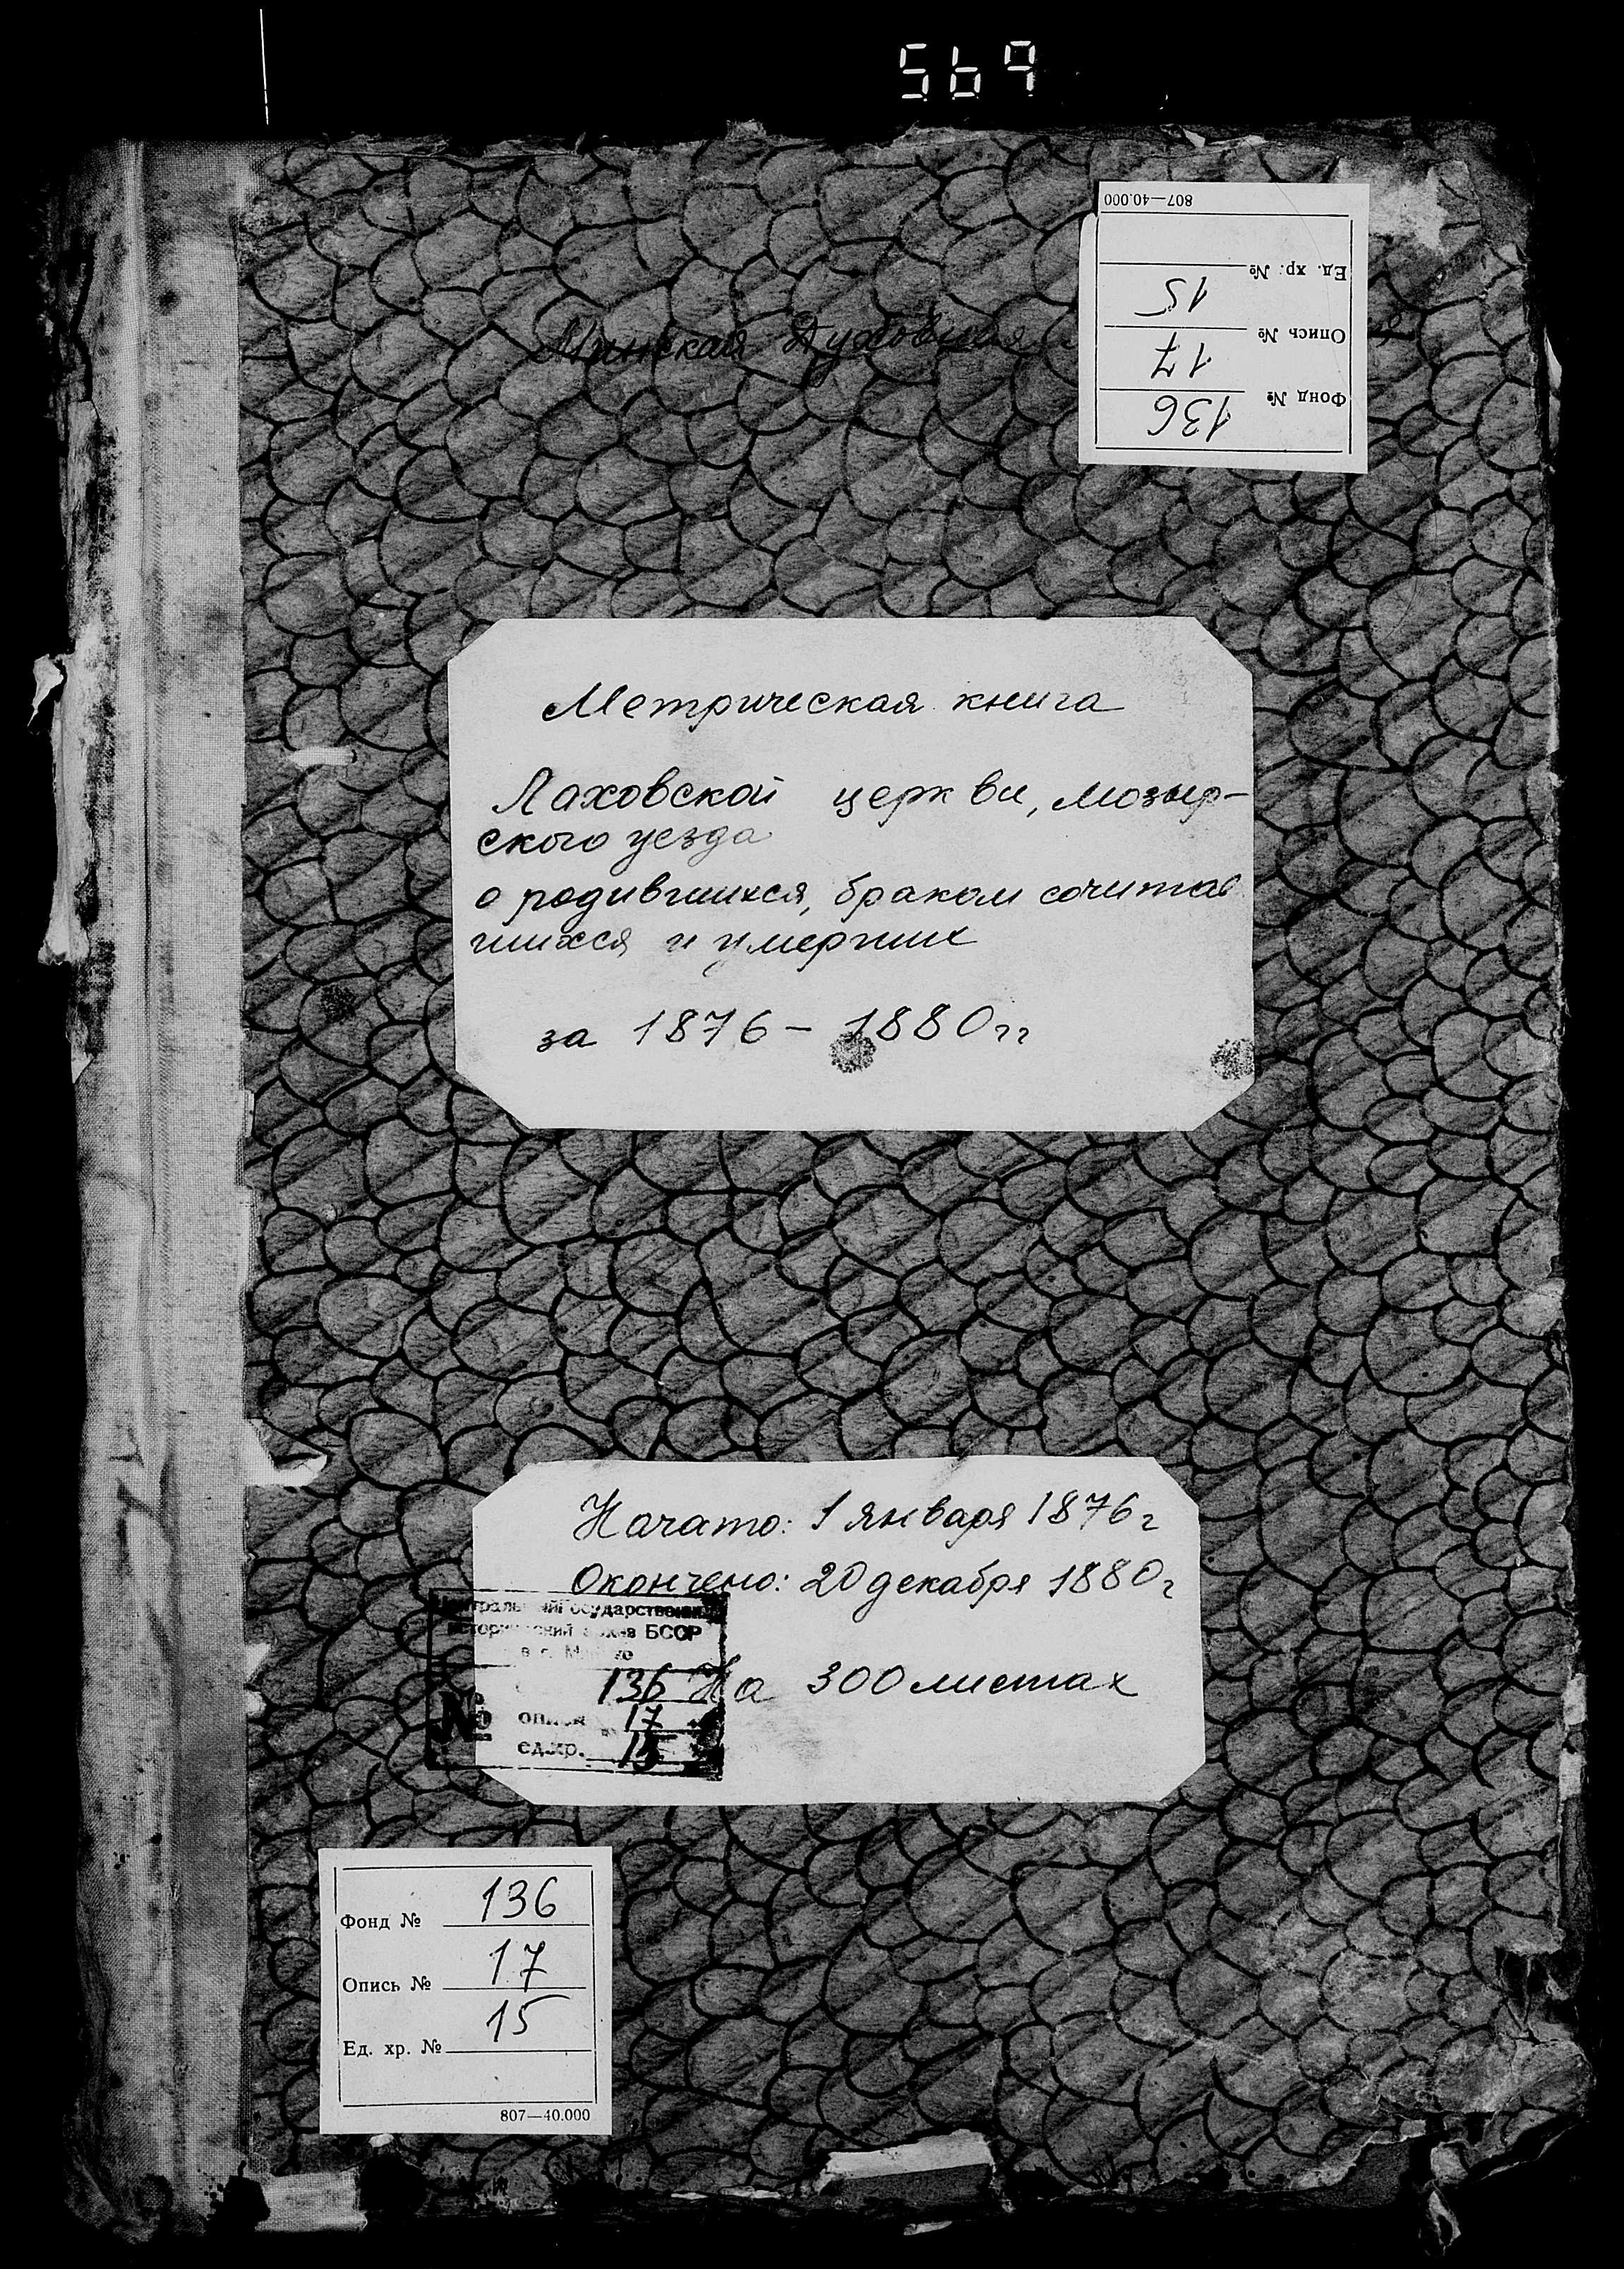 569
807—40.000
Ед. хр. №
15
Опись №
17
Фонд №
136
Минская Духовная
Метрическая книга
Ляховской церкви, мозыр-
ского уезда
о родившихся, браком сочитав
шихся и умерших
за 1876 – 1880 гг
Начато: 1 января 1876 г
Окончено: 20 декабря 1880 г
На 300 листах
Государственный
БССР
в г.
136
№ 17
ед.хр. 15
Фонд № 136
Опись № 17
15
Ед. хр. №
807—40.000